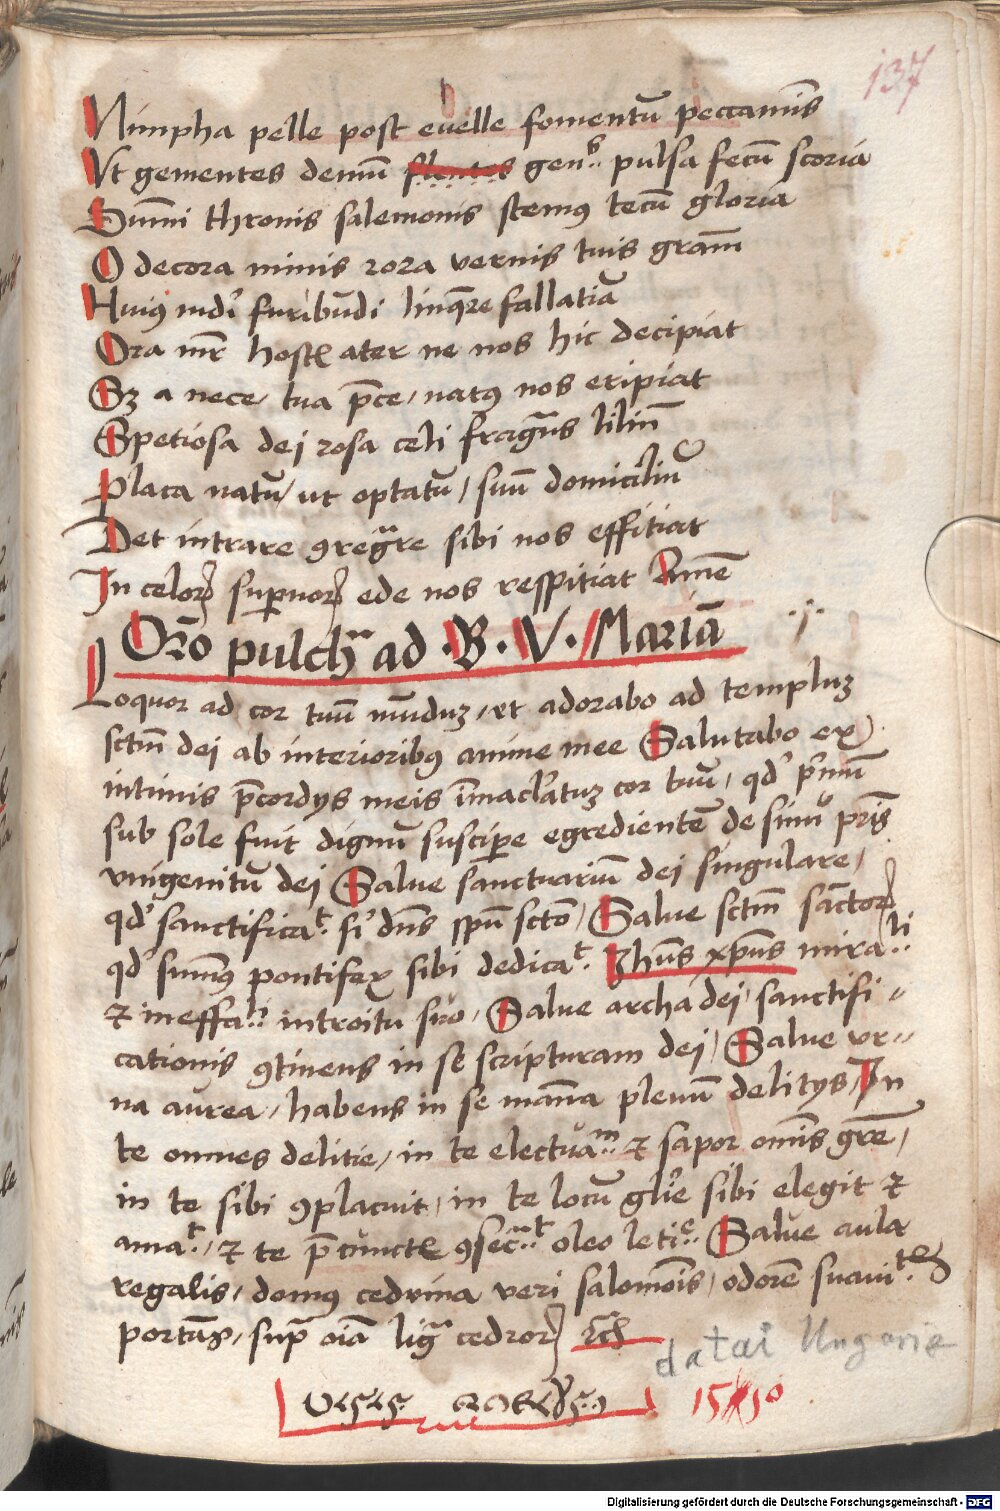 137
Nimpha pelle post evelle fomentū peccamīs
Ut gementes demū flentes genˢ.. pulsa fecū scoria
Sum̄i thronis salemonis stemꝯ tecū gloria
O decora nimis rora vernis tuis gram̄
Huiꝯ mdˀi furibūdi linq̄re fallatiā
Ora mr̄ hostꝭ ater ne nos hic decipiat
Sꝫ a nece / tua p̄ce / natꝯ nos eripiat
Spetiosa dej rosa celi fragᷓns liliū
Placa natū / ut optatū / suū domiciliū
Det intrare ꝯregᷓre sibi nos effitiat
In celoꝝ suꝑnoꝝ ede nos respitiat Amē
Orō pulchᷓ ad · B · V · Mariā
Loquor ad cor tuū mūduꝫ / et adorabo ad templuꝫ
sctm̄ dei ab interioribꝯ anime mee Salutabo ex
intimis p̄cordijs meis im̄aclˀatuꝫ cor tuū / qdˀ pˀmū
sub sole fuit dignū susciꝑe egredientē de sinu pr̄is
unigenitū dej Salve sanctuariū dei singulare /
qdˀ sanctificaᵗ. sˀi dn̄s spū sctō / Salve sctm̄ sāctoꝝ
qdˀ sum̄ꝯ pontifex sibi dedicaᵗ. Jhūs xp̄us miraˡⁱ..
⁊ ineffaˡⁱ.. introitu suo / Salve archa dej / sanctifi //
cationis ꝯtinens in se scripturam dej / Salve ur //
na aurea / habens in se mān̄a plenū delitijs / In
te omnes delitie / in te electuaᵐ.. ⁊ sapor om̄is grē /
in te sibi ꝯplacuit / in te locū glˀie sibi elegit ⁊
amaᵗ. / ⁊ te p̄ cunctꝭ ꝯsecᷓᵗ.. oleo letiᵉ.. Salve aula
regalis / domꝯ cedrina veri salomōis / odorē suaviᵗ.
portās / supᷓ oīā ligᷓ cedroꝝ ꝛcͣ
datai Ungarie
15 10